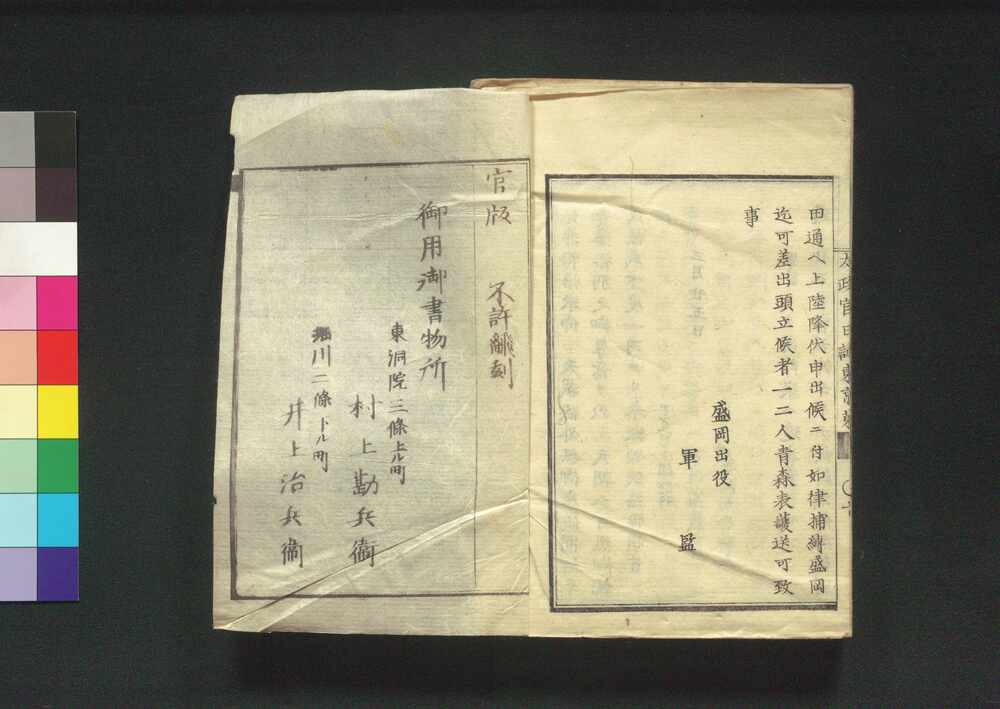 田通ヘ上陸降伏申出候ニ付如律捕縛盛岡
迄可差出頭立候者一二人青森表護送可致
事
盛岡出役
軍監
太政官日誌東京
官版 不許翻刻
御用御書物所
東洞院三條上ル町
村上勘兵衞
堀川二條下ル町
井上治兵衞